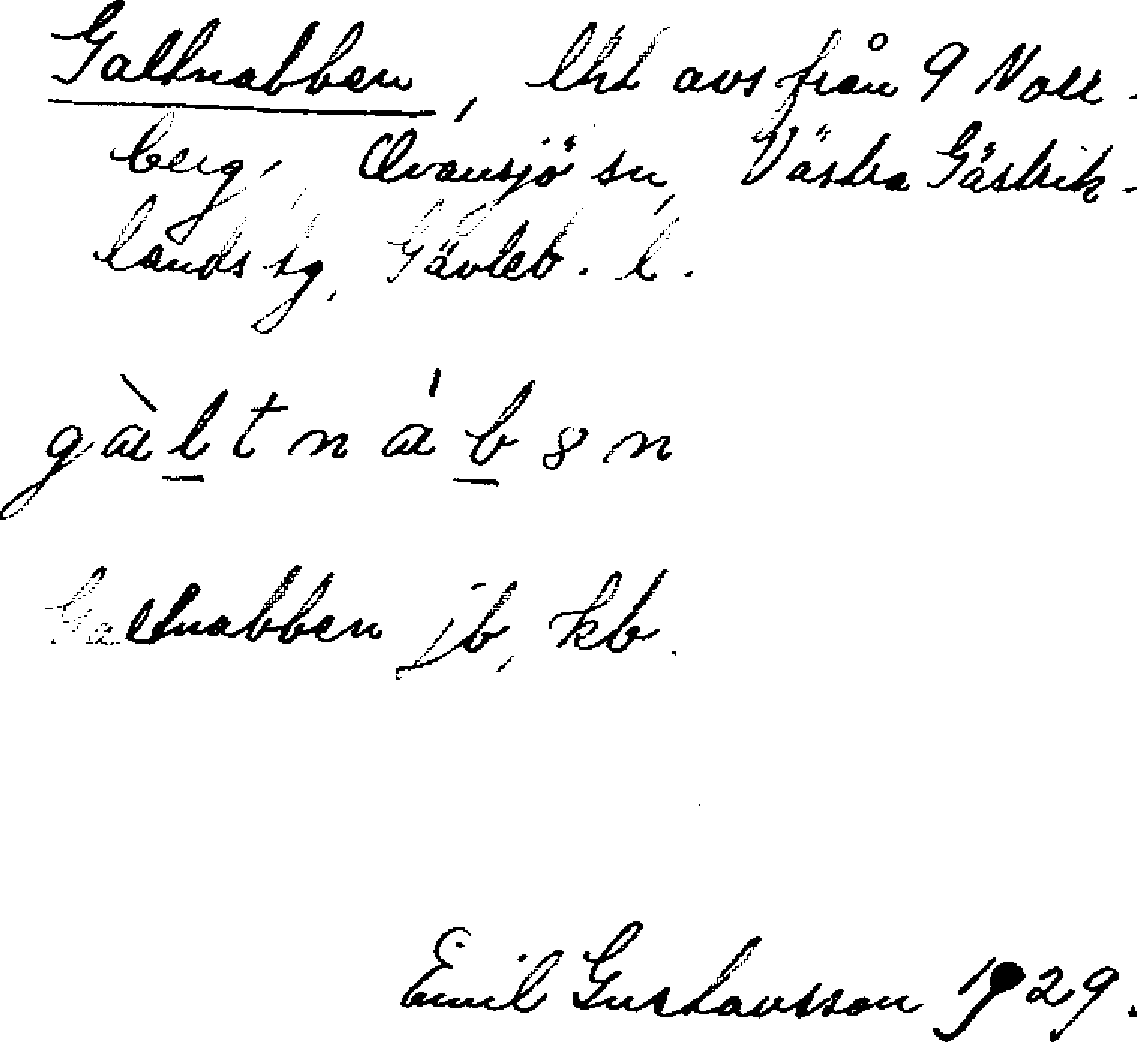 Galtnabben, lht avs från 9 Norr-
berg, Ovansjö sn, Västra Gästrik-
lands tg, Gävleb. l.
gàltnábən
Galtnabben jb, kb.
Emil Gustavsson 1929.